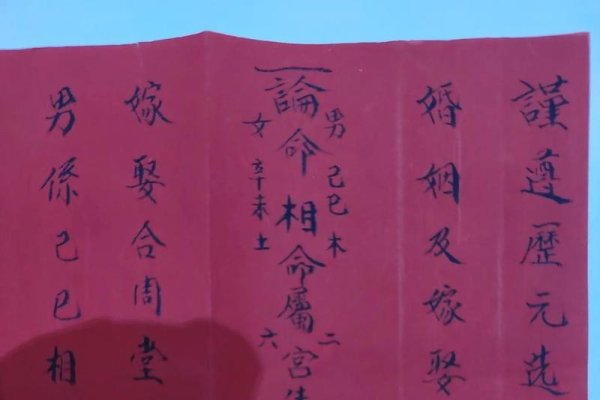 謹遵歷元選
婚姻及嫁娶
男己巳木 二
一論命相命屬宮
女辛未土 六
嫁娶合周堂
男係己巳相